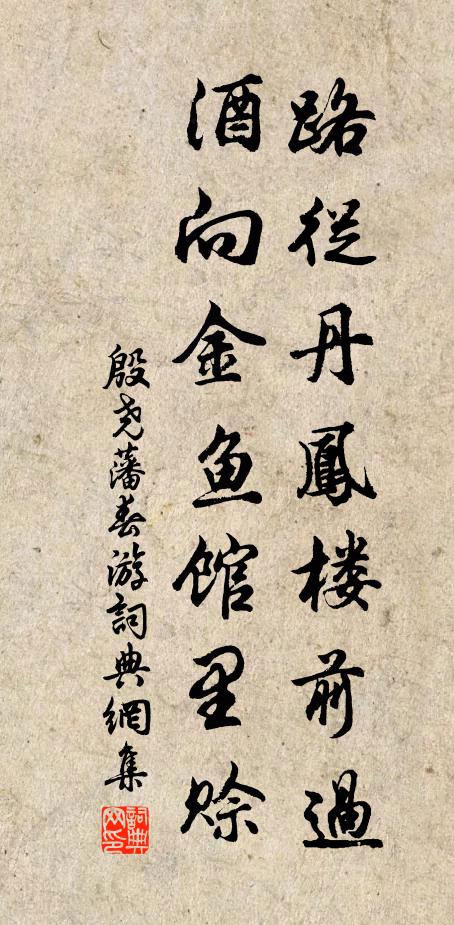 路從丹鳳楼前過
酒向金魚館里賒
殷尧藩春游詞典網集
詞典网印